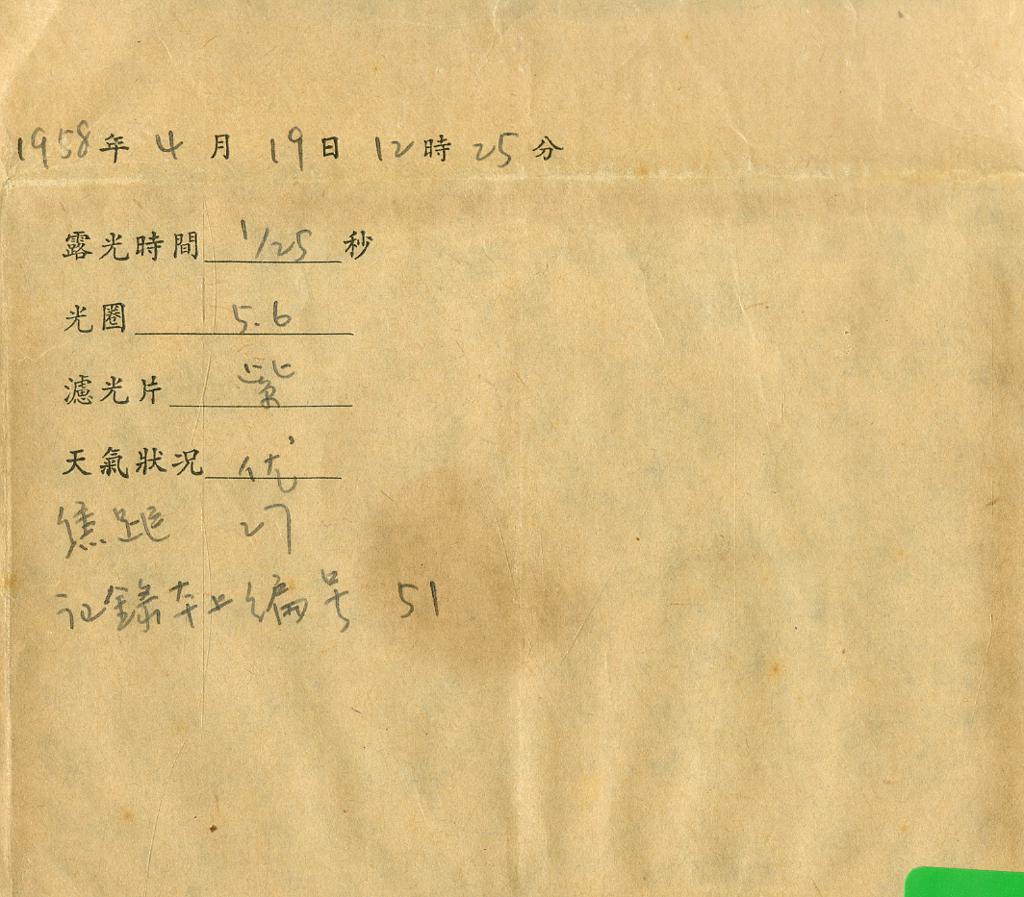 1958年 4月 19日 12時 25分
露光時間 1/25 秒
光圈 5.6
濾光片 紫
天氣狀況 优
焦距 27
记錄本上编号 51